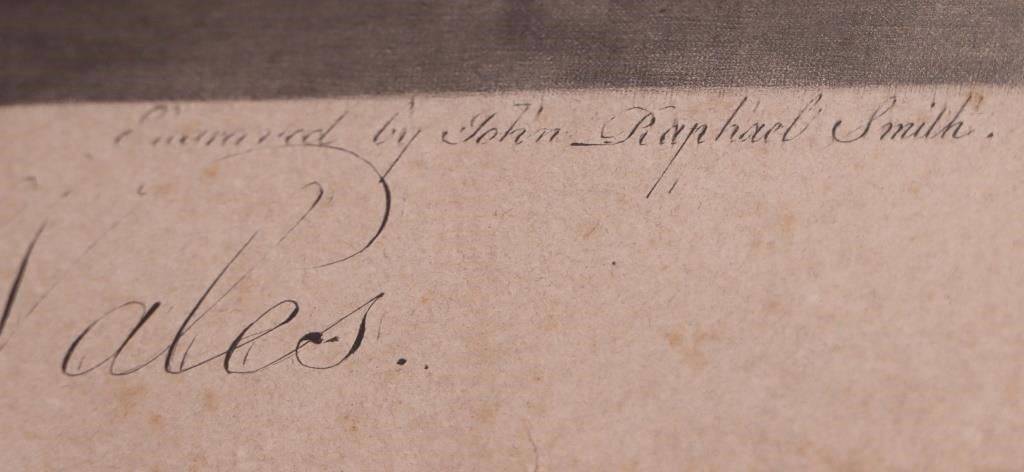 Engraved by John Raphael Smith.
Wales.